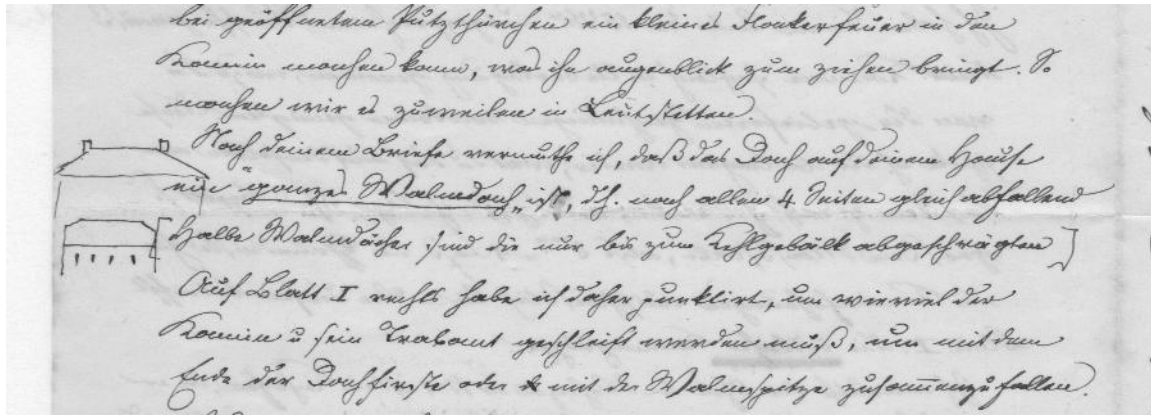 bei geöffnetem Putzthürchen ein kleines Flackerfeuer in den
Kamin machen kann, was ihn augenblickl zum ziehen bringt. So
machen wir es zuweilen in Leutstetten.
Nach deinem Briefe vermuthe ich, daß das Dach auf deinem Hause
ein "ganzes Walmdach" ist, d.h. nach allen 4 Seiten gleich abfallend
[Halbe Walmdächer sind die nur bis zum Kehlgebälk abgeschrägten]
Auf Blatt I rechts habe ich daher punktirt, um wieviel der
Kamin u sein Trabant geschleift werden muß, um mit dem
Ende der Dachfirste oder mit der Walmspitze zusammenzufallen.